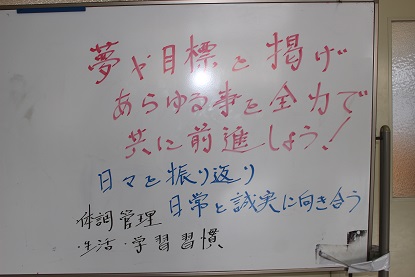 夢や目標を掲げ
あらゆる事を全力で
共に前進しよう!
日々を振り返り
日常と誠実に向き合う
体調管理
・生活・学習習慣